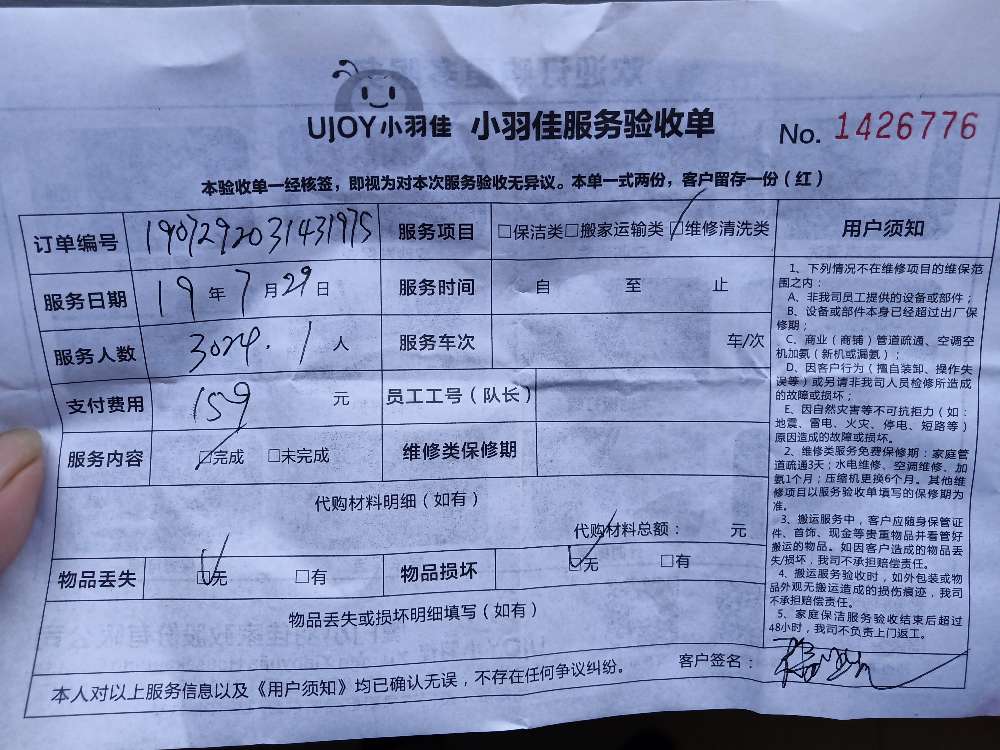 UJOY小羽佳 小羽佳服务验收单 No. 1426776
本验收单一经核签，即视为对本次服务验收无异议。本单一式两份，客户留存一份（红）
订单编号 190729203143197S 服务项目 □保洁类□搬家运输类□维修清洗类
服务日期 19年7月29日 服务时间 自 至 止
服务人数 3024.1人 服务车次 车/次
支付费用 159元 员工工号（队长）
服务内容 □完成 □未完成 维修类保修期
代购材料明细（如有）
代购材料总额： 元
物品丢失 □无 □有 物品损坏 □无 □有
物品丢失或损坏明细填写（如有）
用户须知
1、下列情况不在维修项目的维保范
围之内：
A、非我司员工提供的设备或部件；
B、设备或部件本身已经超过出厂保
修期；
C、商业（商铺）管道疏通、空调空
机加氨（新机或漏氨）；
D、因客户行为（擅自装卸、操作失
误等）或另请非我司人员检修所造成
的故障或损坏；
E、因自然灾害等不可抗拒力（如：
地震、雷电、火灾、停电、短路等）
原因造成的故障或损坏。
2、维修类服务免费保修期：家庭管
道疏通3天；水电维修、空调维修、加
氨1个月；压缩机更换6个月。其他维
修项目以服务验收单填写的保修期为
准。
3、搬运服务中，客户应随身保管证
件、首饰、现金等贵重物品并看管好
搬运的物品。如因客户造成的物品丢
失/损坏，我司不承担赔偿责任。
4、搬运服务验收时，如外包装或物
品外观无搬运造成的损伤痕迹，我司
不承担赔偿责任。
5、家庭保洁服务验收结束后超过
48小时，我司不负责上门返工。
客户签名：
本人对以上服务信息以及《用户须知》均已确认无误，不存在任何争议纠纷。